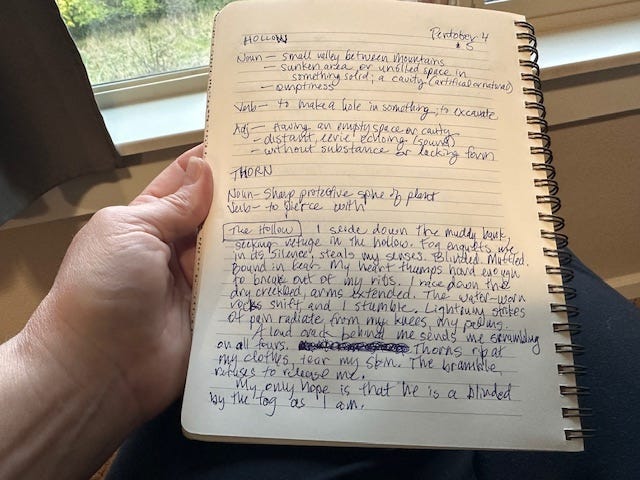 HOLLOW Pentober 4
& 5
Noun — small valley between mountains
- sunken area or unfilled space in
something solid; a cavity (artificial or natural)
- emptiness
Verb — to make a hole in something; to excavate
Adj — having an empty space or cavity
- distant, eerie echoing (sound)
- without substance or lacking form
THORN
Noun - sharp protective spine of plant
Verb - to pierce with
The Hollow I slide down the muddy bank,
seeking refuge in the hollow. Fog engulfs me
in its silence, steals my senses. Blinded. Muffled.
Bound in fear. My heart thumps hard enough
to break out of my ribs. I race down the
dry creekbed, arms extended. The water-worn
rocks shift and I stumble. Lightning strikes
of pain radiate from my knees, my palms.
A loud crack behind me sends me scrambling
on all fours. Thorns rip at
my clothes, tear my skin. The bramble
refuses to release me.
My only hope is that he is a blinded
by the fog as I am.